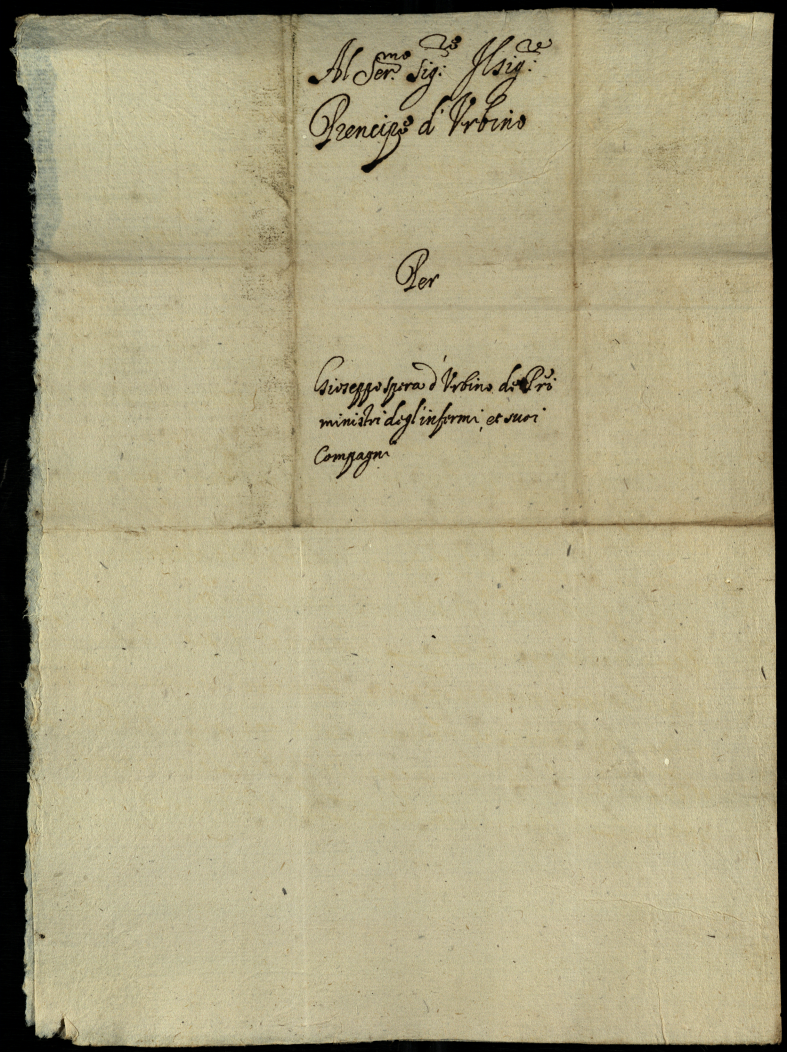 Al Ser.mo Sig.re Il sig.re
Prencipe d'Urbino
Per
Gioseppe spera d'Urbino de Pri
ministri degl'infermi, et suoi
Compagni